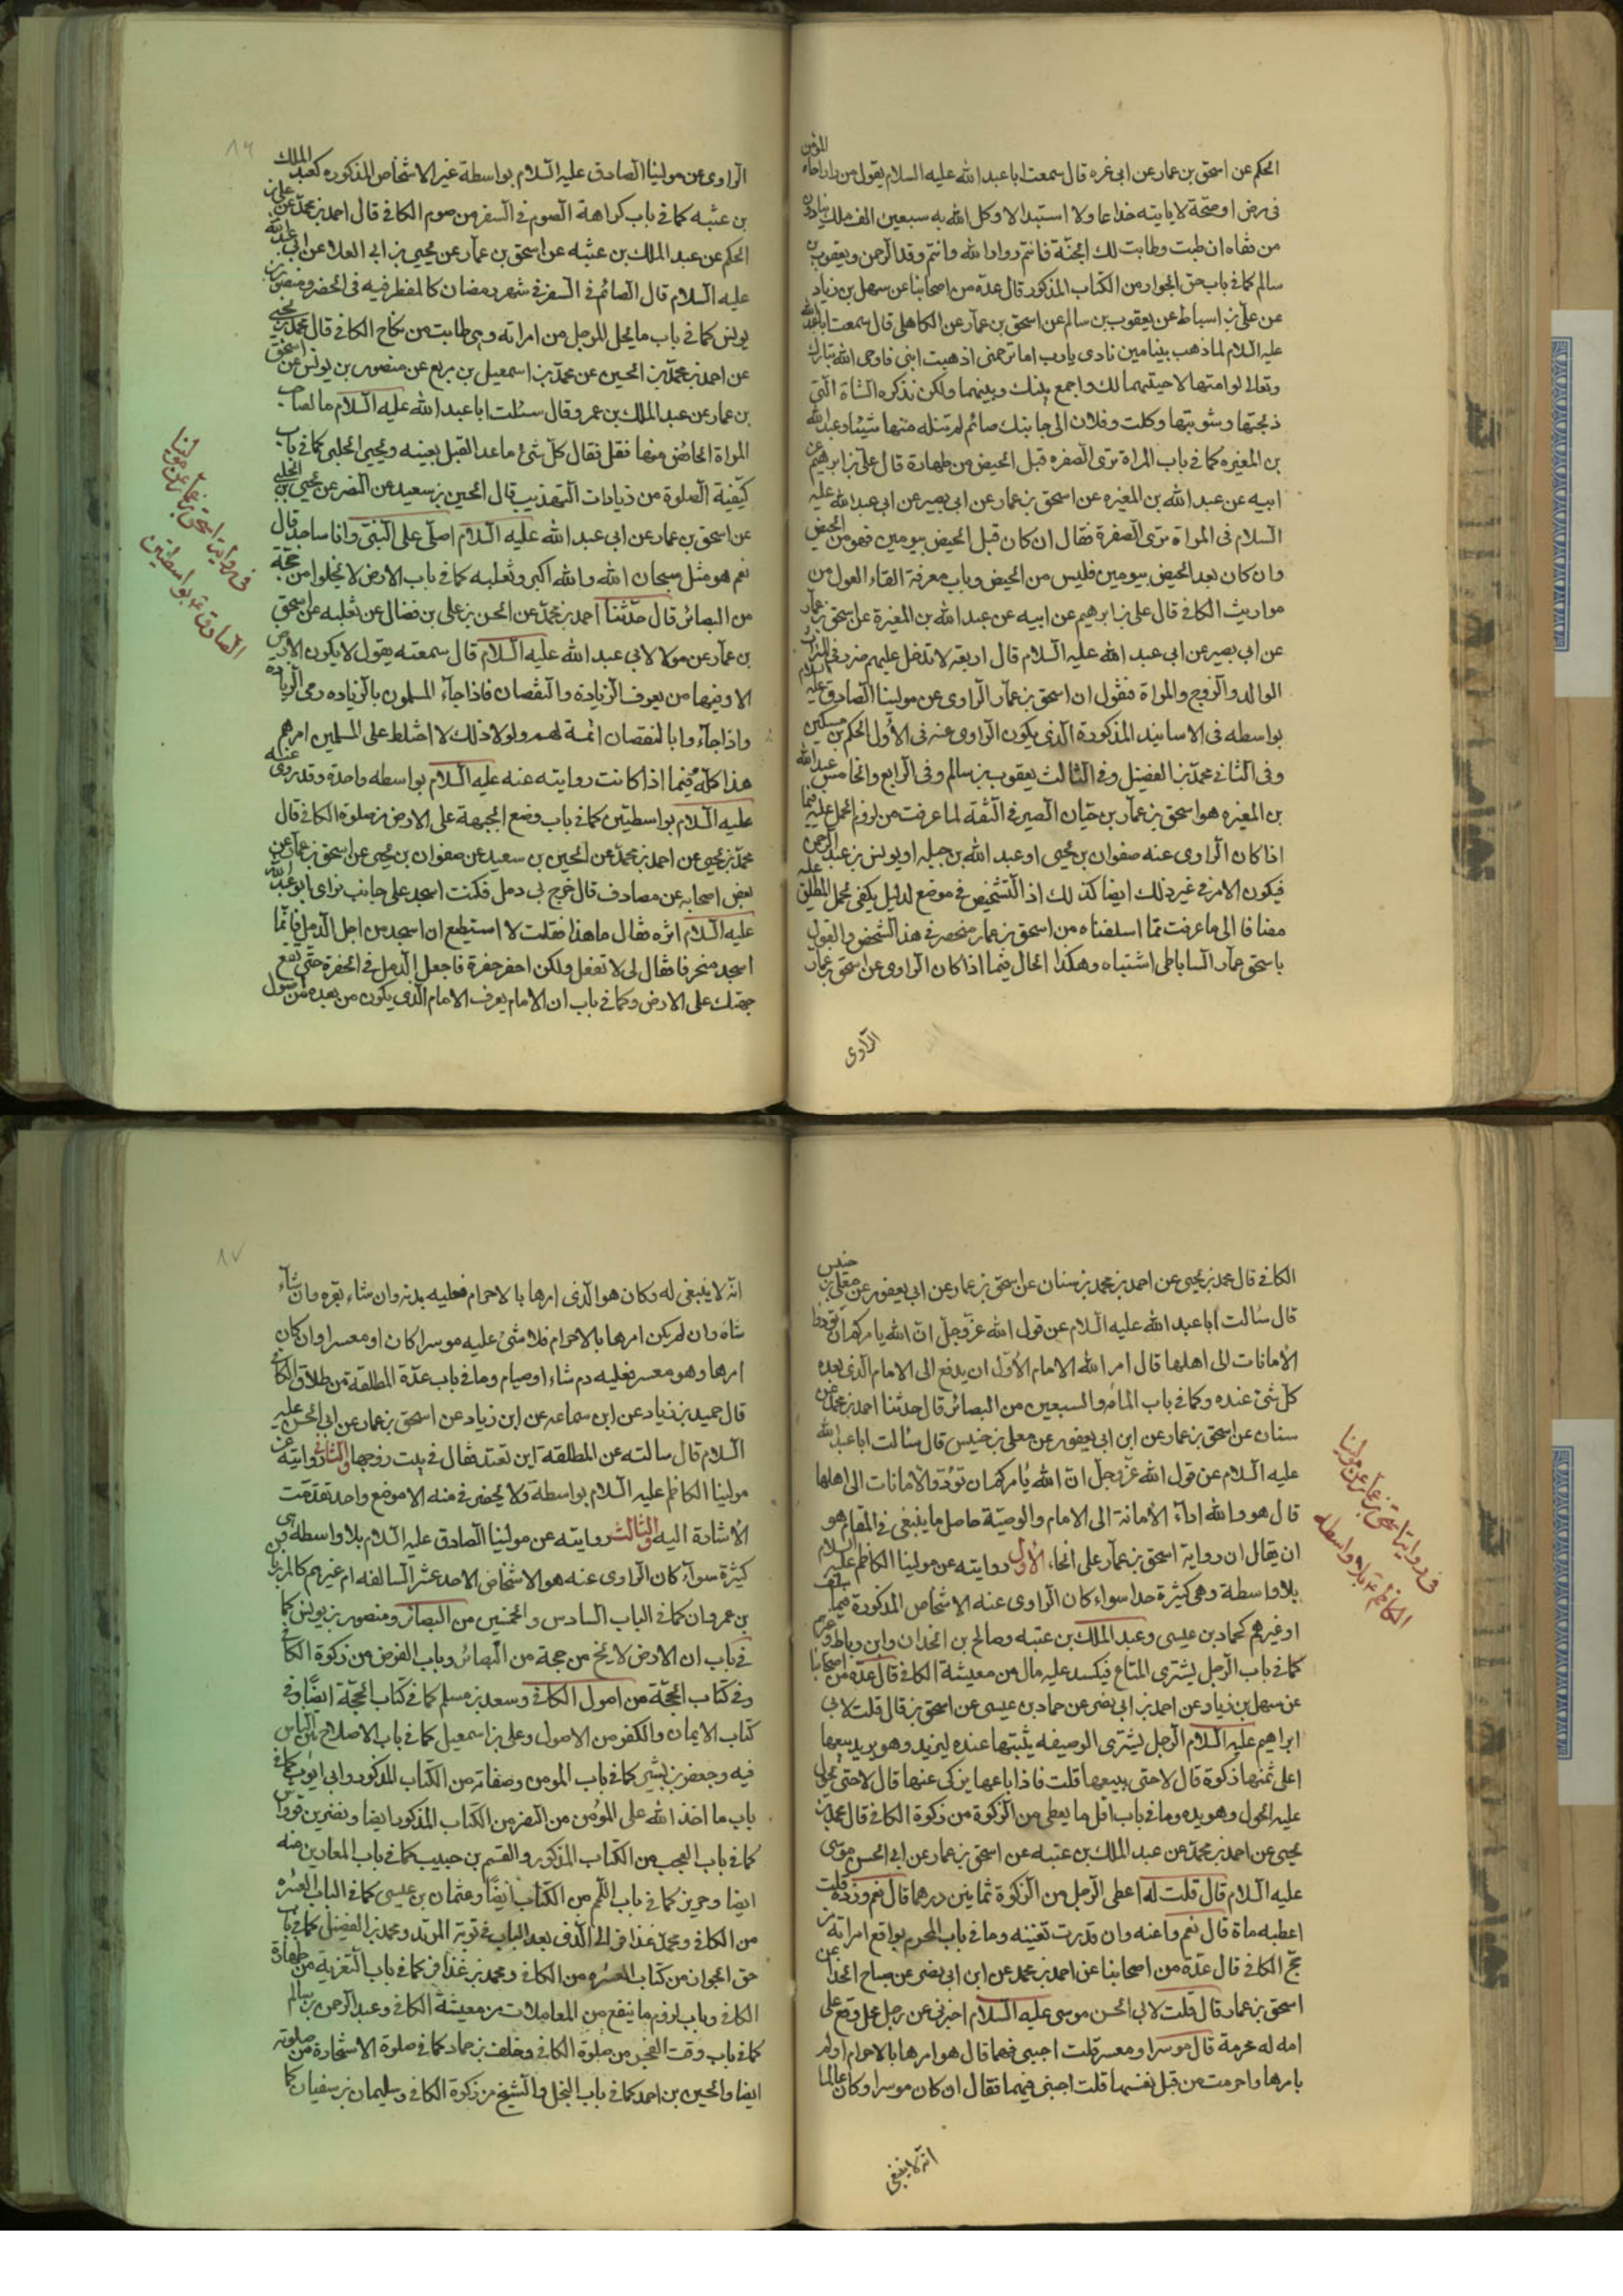 الحكم عن اسحق بن عمار عن ابى غره قال سمعت ابا عبد الله عليه السلام يقول من زار اخاه المؤمن
فى مرض او صحة لا ياتيه خداعا ولا استبدالا وكل الله به سبعين الف ملك ينادون
من قفاه ان طبت وطابت لك الجنة فانتم زوار الله وانتم وفد الرحمن ويعقوب بن
سالم كما فى باب حق الجوار من الكتاب المذكور قال عدة من اصحابنا عن سهل بن زياد
عن على بن اسباط عن يعقوب بن سالم عن اسحق بن عمار عن الكاهلى قال سمعت ابا عبد الله
عليه السلام لما ذهب بنيامين نادى يا رب اما ترحمنى اذهبت ابنى فاوحى الله تبارك
وتعالى لو امتها لاحييتهما لك واجمع بينك وبينهما ولكن تذكره الشاة التى
ذبحتها وشويتها وكلت وفلان الى جانبك صائم لم تنله منها شيئا وعبد الله
بن المغيره كما فى باب المراة ترى الصفره قبل الحيض من طهارة قال على بن ابرهيم عن
ابيه عن عبد الله بن المغيره عن اسحق بن عمار عن ابى بصير عن ابى عبد الله عليه
السلام فى المراة ترى الصفرة فقال ان كان قبل الحيض بيومين فهو من الحيض
وان كان بعد الحيض بيومين فليس من الحيض وباب معرفة القاء العول من
مواريث الكافى قال على بن ابرهيم عن ابيه عن عبد الله بن المغيرة عن اسحق بن عمار
عن ابى بصير عن ابى عبد الله عليه السلام قال اربعة لا تدخل عليهم ضرر فى الميراث
الوالد والزوج والمراة فنقول ان اسحق بن عمار الراوى عن مولينا الصادق عليه السلام
بواسطه فى الاسانيد المذكورة الذى يكون الراوى عنه فى الاول الحكم بن مسكين
وفى الثانى محمد بن الفضيل وفى الثالث يعقوب بن سالم وفى الرابع والخامس عبد الله
بن المغيره هو اسحق بن عمار بن حيان الصيرفى الثقة لما عرفت من لزوم الحمل عليه فيما
اذا كان الراوى عنه صفوان بن يحيى او عبد الله بن جبله او يونس بن عبد الرحمن
فيكون الامر فى غير ذلك ايضا كذلك اذ التشخيص فى موضع لدليل يكفى لحمل المطلق عليه
مضافا الى ما عرفت مما اسلفناه من اسحق بن عمار منحصر فى هذا الشخص والقول
باسحق عمار الساباطى اشتباه وهكذا الحال فيما اذا كان الراوى عن اسحق بن عمار
الراوى
الراوى عن مولينا الصادق عليه السلام بواسطة غير الاشخاص المذكوره كعبد الملك
بن عتبه كما فى باب كراهة الصوم فى السفر من صوم الكافى قال احمد بن محمد عن على بن
الحكم عن عبد الملك بن عتبه عن اسحق بن عمار عن يحيى بن ابى العلا عن ابى عبد الله
عليه السلام قال الصائم فى السفر فى شهر رمضان كالمفطر فيه فى الحضر ومنصور بن
يونس كما فى باب ما يحل للرجل من امراته وهى طامث من نكاح الكافى قال محمد بن يحيى
عن احمد بن محمد بن الحسين عن محمد بن اسمعيل بن بزيع عن منصور بن يونس عن اسحق
بن عمار عن عبد الملك بن عمرو قال سئلت ابا عبد الله عليه السلام ما لصاحب
المراة الحائض منها فقل فقال كل شئ ما عدا القبل بعينه ويحيى الحلبى كما فى باب
كيفية الصلوة من زيادات التهذيب قال الحسين بن سعيد عن النضر عن يحيى الحلبى
عن اسحق بن عمار عن ابى عبد الله عليه السلام اصلى على النبى وانا ساجد قال
نعم هو مثل سبحان الله والله اكبر وثعلبه كما فى باب الارض لا يخلوا من حجة
من البصائر قال حدثنا احمد بن محمد عن الحسن بن على بن فضال عن ثعلبه عن اسحق
بن عمار عن مولا لابى عبد الله عليه السلام قال سمعته يقول لا يكون الارض
الا وفيها من يعرف الزيادة والنقصان فاذا جاء المسلمون بالزياده رمى الزيادة
واذا جاءوا بالنقصان اتمه لهم ولولا ذلك لا اختلط على المسلمين امرهم
هذا كله فيما اذا كانت روايته عنه عليه السلام بواسطه واحدة وقد روى عنه
عليه السلام بواسطتين كما فى باب وضع الجبهة على الارض من صلوة الكافى قال
محمد بن يحيى عن احمد بن محمد عن الحسين بن سعيد عن صفوان بن يحيى عن اسحق بن عمار عن
بعض اصحابه عن مصادف قال خرج بى دمل فكنت اسجد على جانب فراى ابو عبد الله
عليه السلام اثره فقال ما هذا فقلت لا استطيع ان اسجد من اجل الدمل فانما
اسجد منحرفا فقال لى لا تفعل ولكن احفر حفرة فاجعل الدمل فى الحفرة حتى تقع
جبهتك على الارض وكما فى باب ان الامام يعرف الامام الذى يكون من بعده من اصول
فى رواية اسحق بن عمار عن مولينا
الصادق ع بواسطتين
الكافى قال محمد بن يحيى عن احمد بن محمد بن سنان عن اسحق بن عمار عن ابى يعفور عن معلى بن خنيس
قال سالت ابا عبد الله عليه السلام عن قول الله عز وجل ان الله يامركم ان تؤدوا
الامانات الى اهلها قال امر الله الامام الاول ان يدفع الى الامام الذى بعده
كل شئ عنده وكما فى باب المائه والسبعين من البصائر قال حدثنا احمد بن محمد عن
سنان عن اسحق بن عمار عن ابن ابى يعفور عن معلى بن خنيس قال سالت ابا عبد الله
عليه السلام عن قول الله عز وجل ان الله يامركم ان تؤدوا الامانات الى اهلها
قال هو والله اداء الامانة الى الامام والوصية حاصل ما ينبغى فى المقام هو
ان يقال ان رواية اسحق بن عمار على انحاء الاول روايته عن مولينا الكاظم عليه السلام
بلا واسطة وهى كثيرة جدا سواء كان الراوى عنه الاشخاص المذكورة فيما سلف
او غيرهم كحماد بن عيسى وعبد الملك بن عتبه وصالح بن الخذان وابن رباط وغيرهم
كما فى باب الرجل يشترى المتاع فيكسد عليه مال من معيشة الكافى قال عدة من اصحابنا
عن سهل بن زياد عن احمد بن ابى نصر عن حماد بن عيسى عن اسحق بن قال قلت لابى
ابراهيم عليه السلام الرجل يشترى الوصيفه يثبتها عنده ليزيد وهو يريد بيعها
اعلى ثمنها زكوة قال لا حتى يبيعها قلت فاذا باعها يزكى عنها قال لا حتى يحول
عليه الحول وهو بيده وما فى باب اقل ما يعطى من الزكوة من زكوة الكافى قال محمد بن
يحيى عن احمد بن محمد عن عبد الملك بن عتبه عن اسحق بن عمار عن ابى الحسن موسى
عليه السلام قال قلت له اعطى الرجل من الزكوة ثمانين درهما قال نعم وزده قلت
اعطيه ماة قال نعم واغنه وان قدرت تغنيه وما فى باب المحرم يواقع امراته من
حج الكافى قال عدة من اصحابنا عن احمد بن محمد عن ابن ابى نصر عن صباح الحذا عن
اسحق بن عمار قال قلت لابى الحسن موسى عليه السلام اخبرنى عن رجل محل وقع على
امه له محرمة قال موسرا ومعسر قلت اجبنى فيهما قال هو امرها بالاحرام او لم
يامرها واحرمت من قبل نفسها قلت اجبنى فيهما فقال ان كان موسرا وكان عالما
انه لا ينبغى
فى رواية اسحق بن عمار عن مولينا
الكاظم ع بلا واسطه
انه لا ينبغى له وكان هو الذى امرها بالاحرام فعليه بدنه وان شاء بقره وان شاء
شاة وان لم يكن امرها بالاحرام فلا شئ عليه موسرا كان او معسرا وان كان
امرها وهو معسر فعليه دم شاء او صيام وما فى باب عدة المطلقة من طلاق الكافى
قال حميد بن زياد عن ابن سماعه عن ابن زياد عن اسحق بن عمار عن ابى الحسن عليه
السلام قال سالته عن المطلقه اين تعتد فقال فى بيت زوجها والثانى روايته عن
مولينا الكاظم عليه السلام بواسطة ولا يحضر فى منه الا موضع واحد تقدمت
الاشارة اليه والثالث روايته عن مولينا الصادق عليه السلام بلا واسطه وهى
كثيرة سواء كان الراوى عنه هو الاشخاص الاحد عشر السالفه ام غيرهم كالمرزبان
بن عمر وان كما فى الباب السادس والخمسين من البصائر ومنصور بن يونس كما
فى باب ان الارض لا يخ من حجة من البصائر وباب الفرض من زكوة الكافى
وفى كتاب الحجة من اصول الكافى وسعد بن مسلم كما فى كتاب الحجة ايضا وفى
كتاب الايمان والكفر من الاصول وعلى بن اسمعيل كما فى باب الاصلاح بين الناس
فيه وجعفر بن بشير كما فى باب المومن وصفاته من الكتاب المذكور وابى ايوب كما فى
باب ما اخذ الله على المؤمن من الصبر من الكتاب المذكور ايضا ونضر بن قرواش
كما فى باب العجب من الكتاب المذكور والقسم بن حبيب كما فى باب المعارين منه
ايضا وحريز كما فى باب اللمم من الكتاب ايضا وعثمان بن عيسى كما فى الباب العشره
من الكافى ومحمد غذافر الى الذى بعد الباب فى توبة المرتد ومحمد بن الفضيل كما فى باب
حق الجوار من كتاب العشره من الكافى ومحمد بن غذافر كما فى باب التعزية من طهارة
الكافى وباب لزوم ما ينفع من المعاملات من معيشة الكافى وعبد الرحمن بن سالم
كما فى باب وقت الفجر من صلوة الكافى وخلف بن حماد كما فى صلوة الاستخارة من صلوته
ايضا والحسين بن احمد كما فى باب البخل والشيخ من زكوة الكافى وسليمان بن سفيان كما